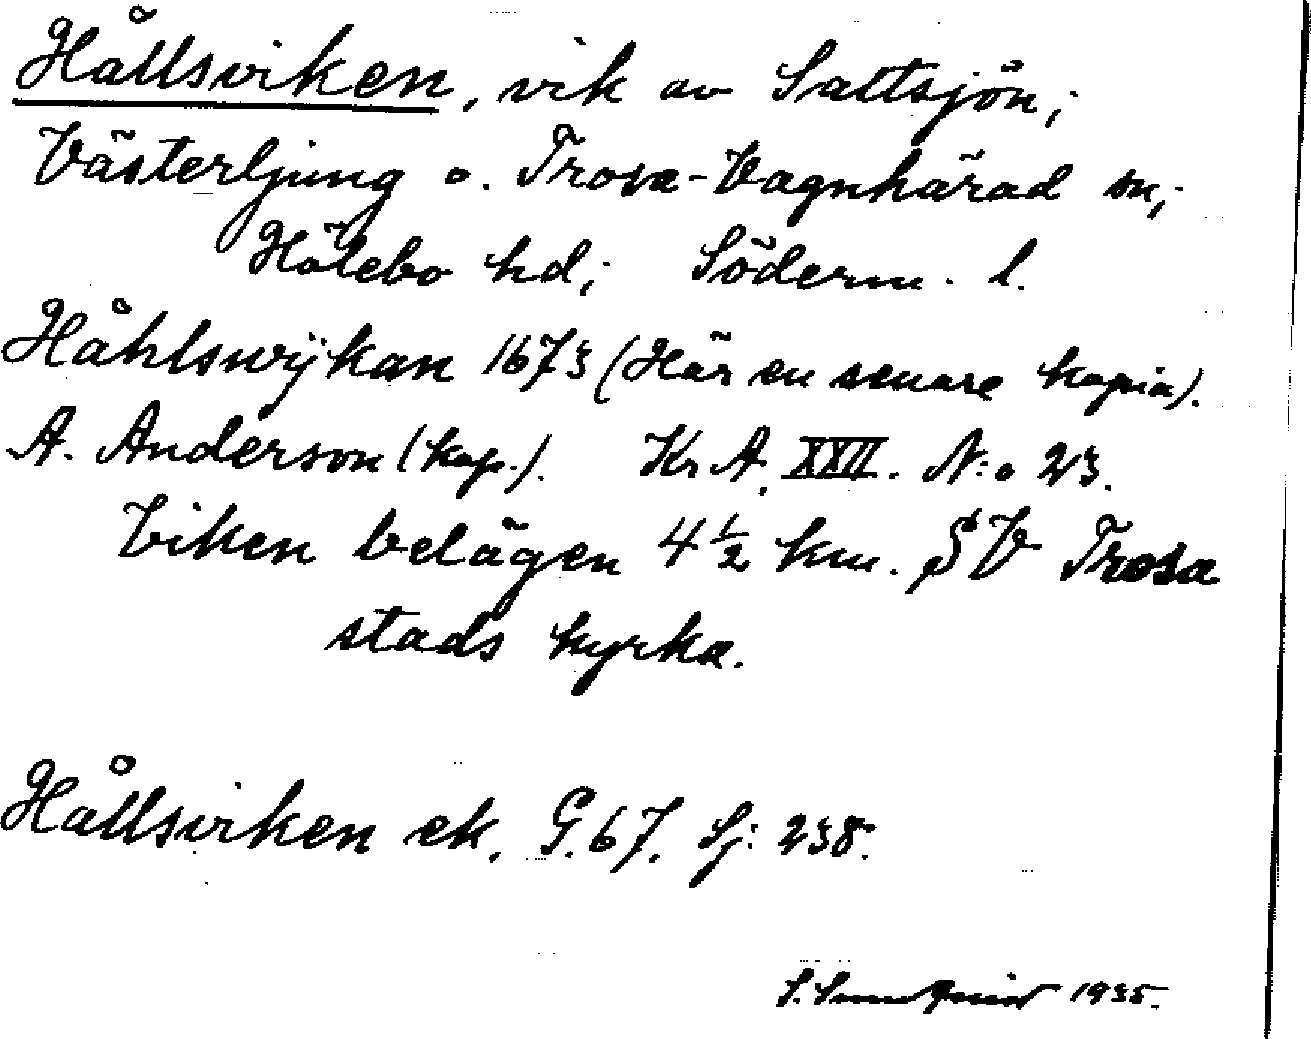 Hållsviken, vik av Saltsjön;
Västerljung o. Trosa-Vagnhärad sn;
Hölebo hd; Söderm. l.
Håhlswijkan 1673 (Här en senare kopia).
A. Anderson (kop.). Kr A. XXII. N:o 23.
Viken belägen 4 1/2 km. SV Trosa
stads kyrka.
Hållsviken ek. G. 67. Sj: 238.
S. 1935.